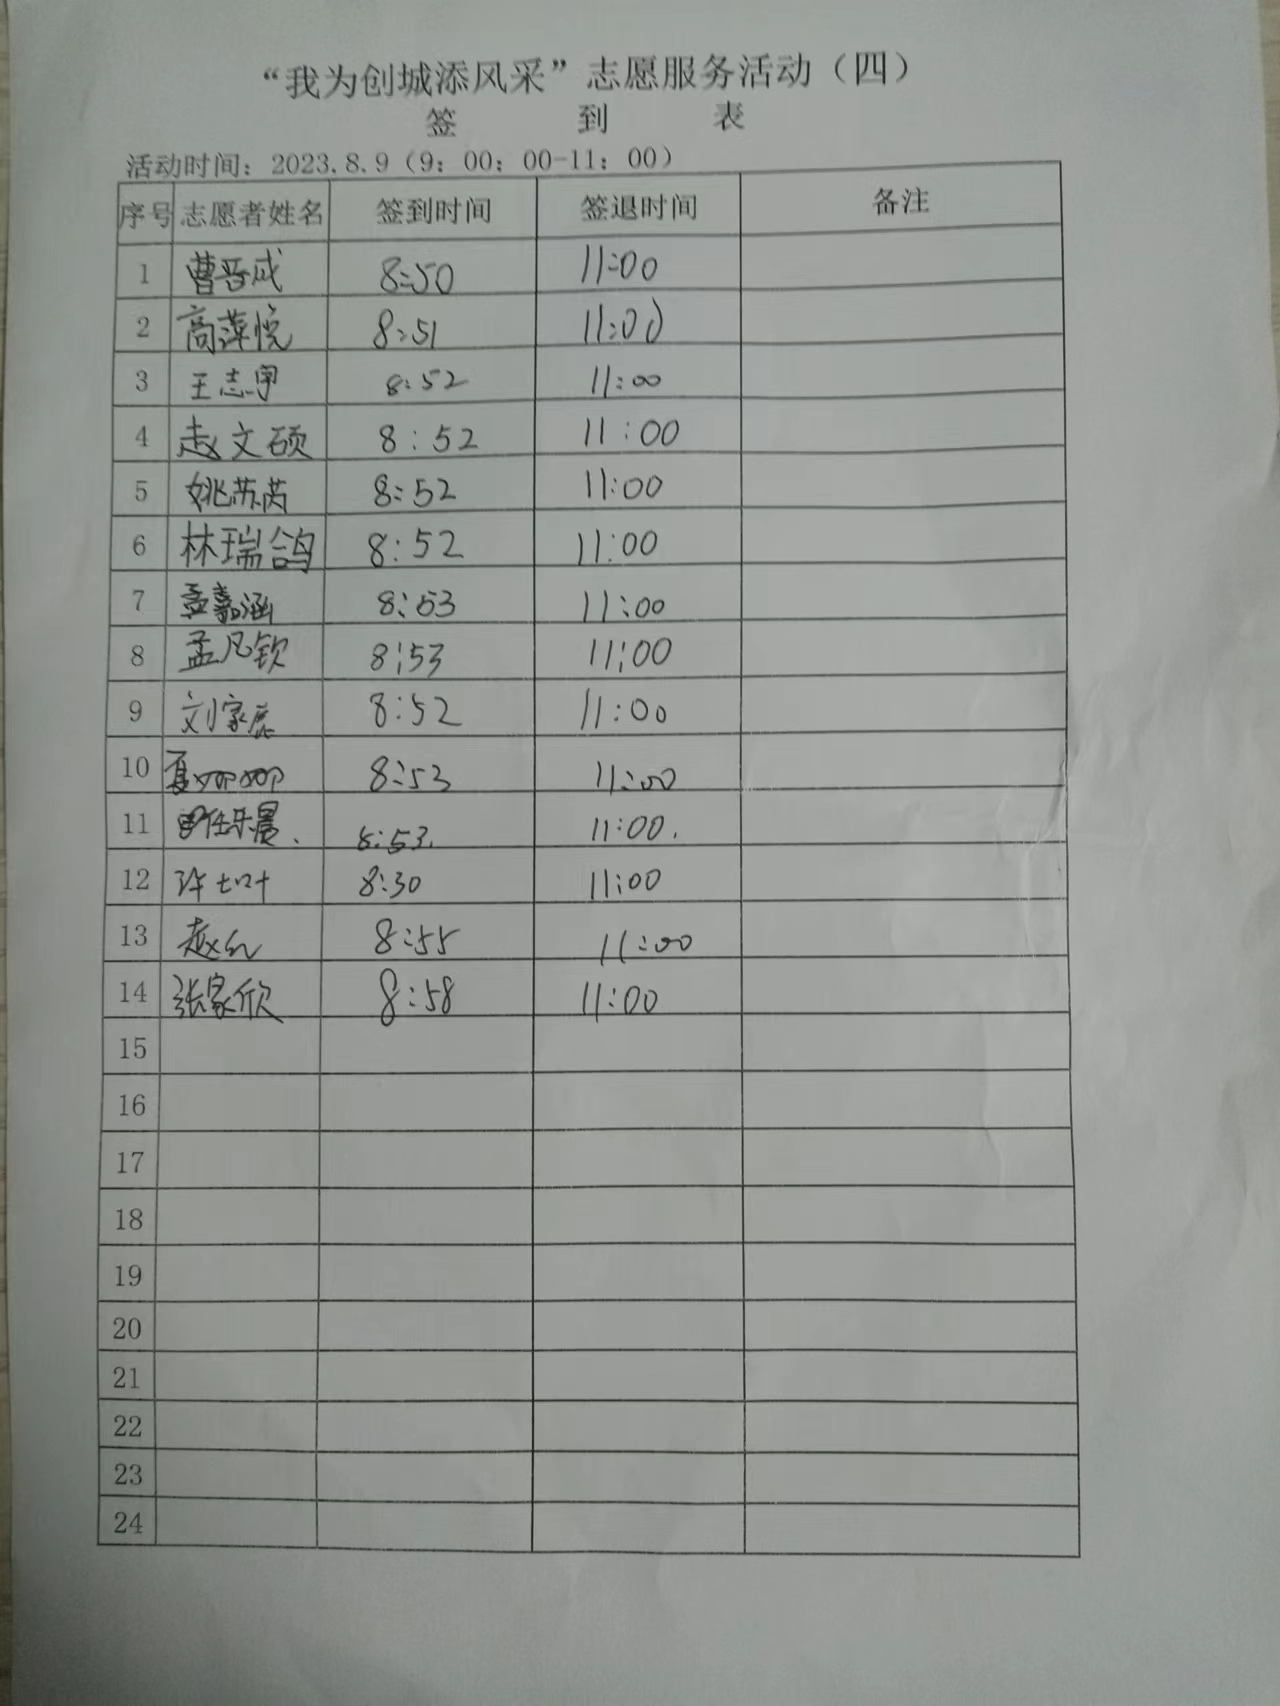 “我为创城添风采”志愿服务活动（四）
签 到 表
活动时间：2023.8.9（9：00：00-11：00）
序号 志愿者姓名 签到时间 签退时间 备注
1 曹晋成 8:50 11:00
2 高萍悦 8:51 11:00
3 王志甲 8:52 11:00
4 赵文硕 8:52 11:00
5 姚苏芮 8:52 11:00
6 林瑞鸽 8:52 11:00
7 孟嘉涵 8:53 11:00
8 孟凡钦 8:53 11:00
9 刘家 8:52 11:00
10 夏娜娜 8:53 11:00
11 任乐晨. 8:53. 11:00.
12 许 8:30 11:00
13 赵 8:55 11:00
14 张家欣 8:58 11:00
15
16
17
18
19
20
21
22
23
24